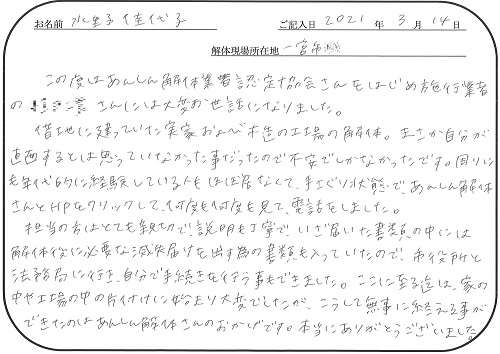 お名前 水野 佳代子 ご記入日 2021 年 3 月 14 日
解体現場所在地 一宮市
この度はあんしん解体業者認定協会さんをはじめ施行業者
の さんには大変お世話になりました。
借地に建っていた実家および木造の工場の解体。まさか自分が
直面するとは思っていなかった事だったので不安でしかなかったです。周りに
も年代的に経験している人もほぼ居なくて、手さぐり状態で、あんしん解体
さんとHPをクリックして、何度も何度も見て、電話をしました。
担当の方はとても親切で!説明も丁寧で、いざ届いた書類の中には
解体後に必要な滅失届けを出す為の書類も入っていたので!市役所と
法務局に行き、自分で手続きを行う事もできました。ここに至る迄は、家の
中や工場の中の片付けに始まり大変でしたが、こうして無事に終える事が
できたのはあんしん解体さんのおかげです。本当にありがとうございました。